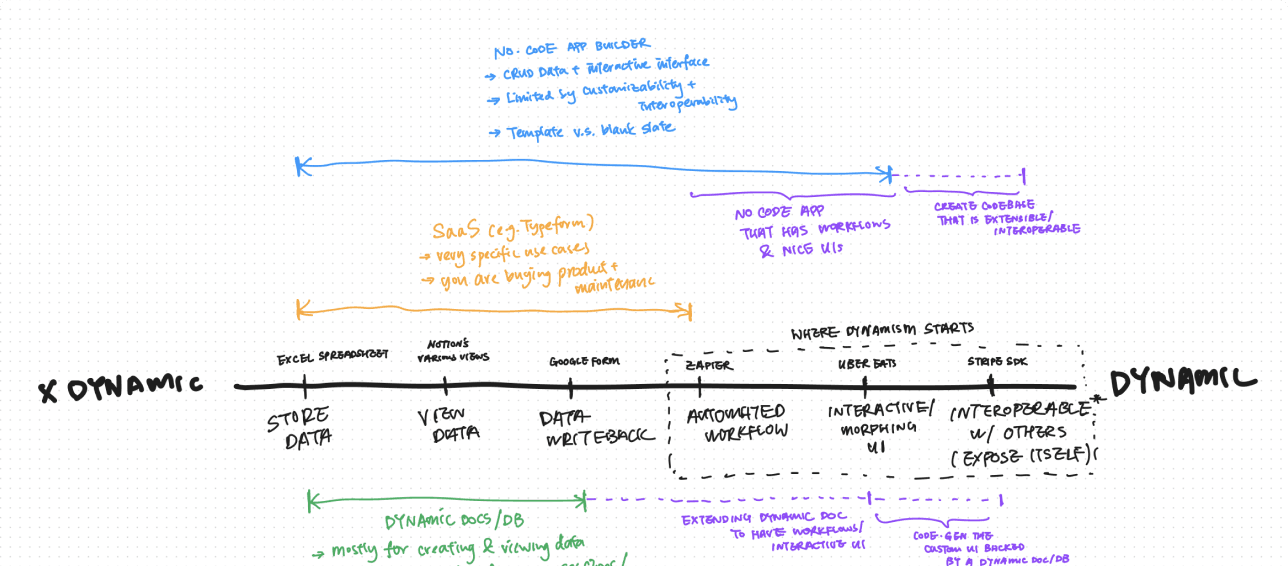 NO-CODE APP BUILDER
→ CRUD Data + interactive interface
→ Limited by customizability +
interoperability
→ Template v.s. blank slate
NO CODE APP
THAT HAS WORKFLOWS
& NICE UIs
CREATE CODEBASE
THAT IS EXTENSIBLE/
INTEROPERABLE
SaaS (e.g. Typeform)
→ very specific use cases
→ you are buying product +
maintenanc
WHERE DYNAMISM STARTS
EXCEL SPREADSHEET
NOTION'S
VARIOUS VIEWS
GOOGLE FORM
ZAPIER
UBER EATS
STRIPE SDK
X DYNAMIC
DYNAMIC
STORE
DATA
VIEW
DATA
DATA
WRITEBACK
AUTOMATED
WORKFLOW
INTERACTIVE/
MORPHING
UI
INTEROPERABLE *
W/ OTHERS
(EXPOSE ITSELF)
DYNAMIC DOCS/DB
→ mostly for creating & viewing data
EXTENDING DYNAMIC DOC
TO HAVE WORKFLOWS/
INTERACTIVE UI
CODE-GEN THE
CUSTOM UI BACKED
BY A DYNAMIC DOC/DB